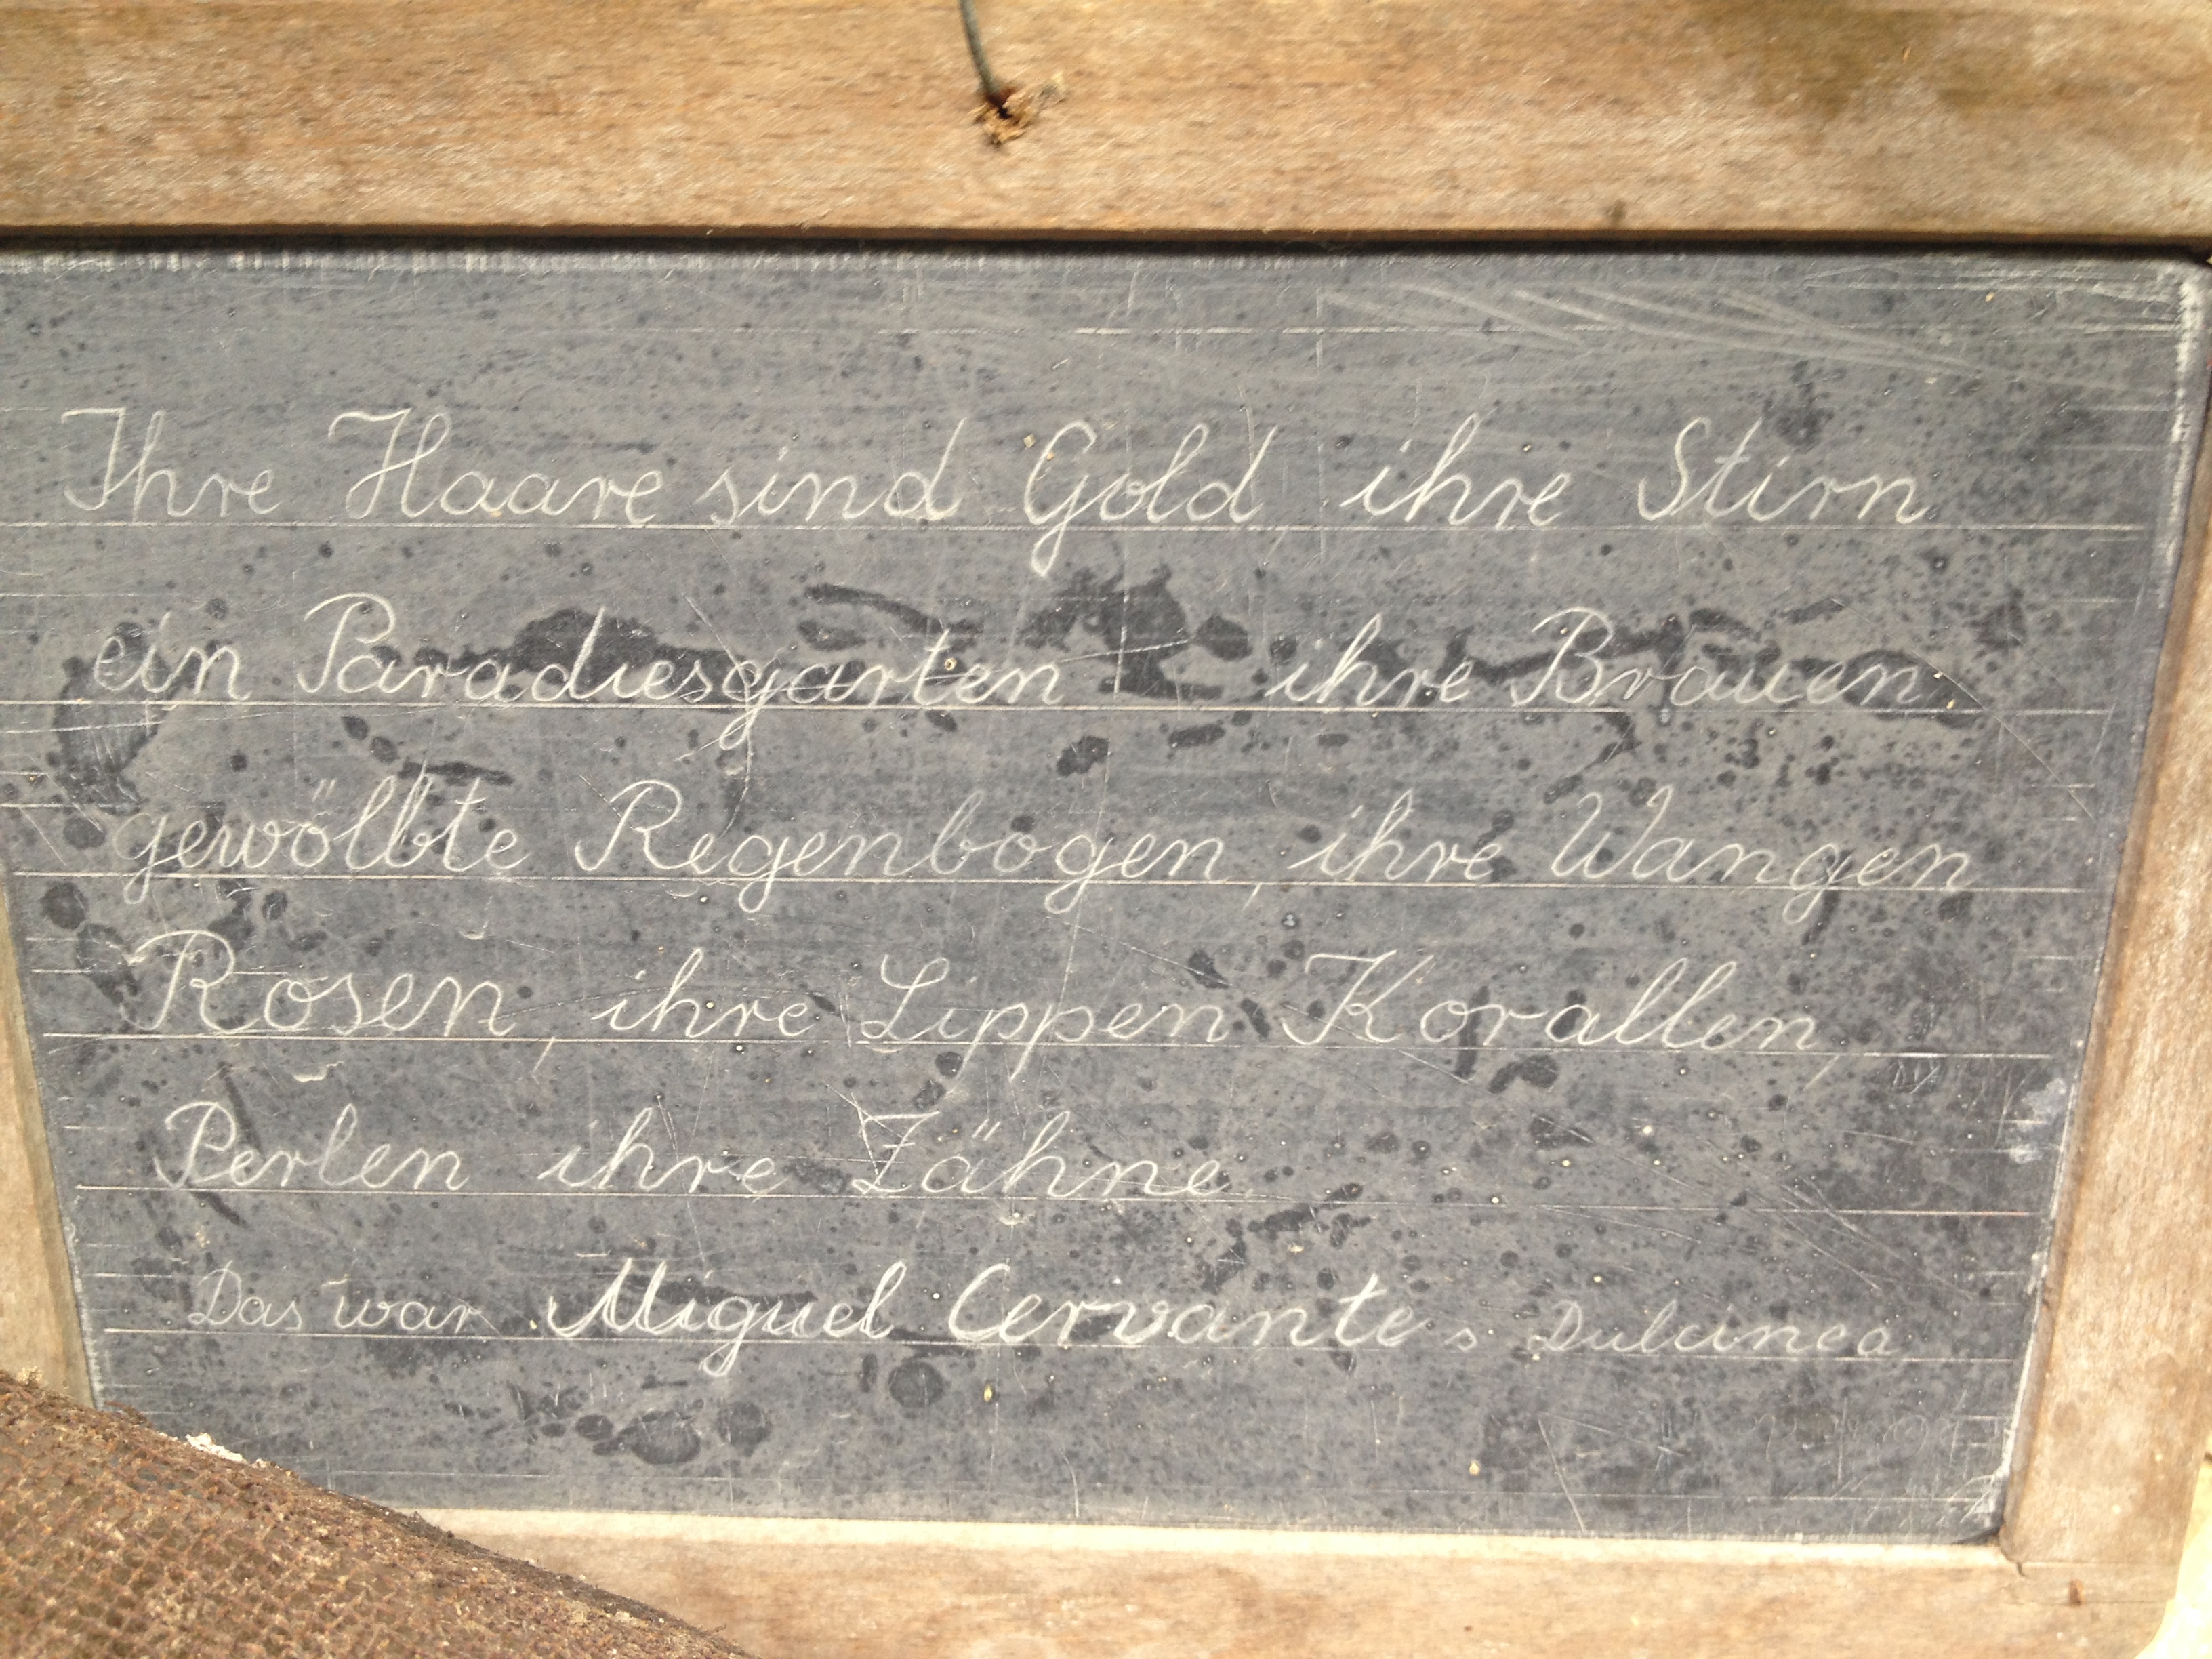 Ihre Haare sind Gold, ihre Stirn
ein Paradiesgarten ihre Brauen
gewölbte Regenbogen, ihre Wangen
Rosen, ihre Lippen Korallen,
Perlen ihre Zähne
Das war Miguel Cervantes Dulcinea